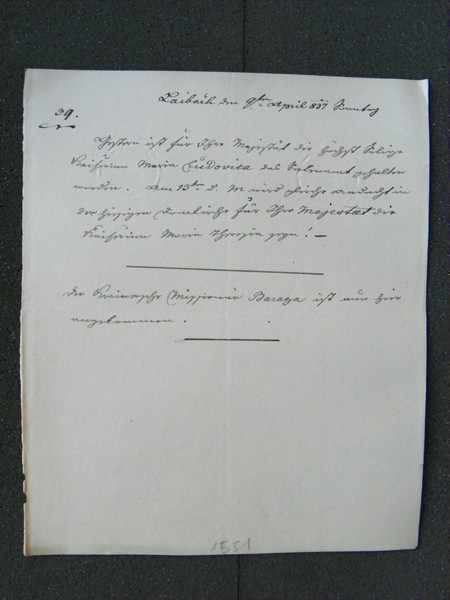 39.
Laibach den 9ten April 837 Sonntag
Gestern ist für Ihre Majestät die höchst Selige
Kaiserin Maria Ludovica das Seelenamt gehalten
worden. Am 13ten d. M wird gleiche Andacht in
der hiesigen Domkirche für Ihre Majestaet die
Kaiserin Maria Theresia seyn! –
Der Krainerische Missionär Baraga ist nun hier
angekommen.
1551